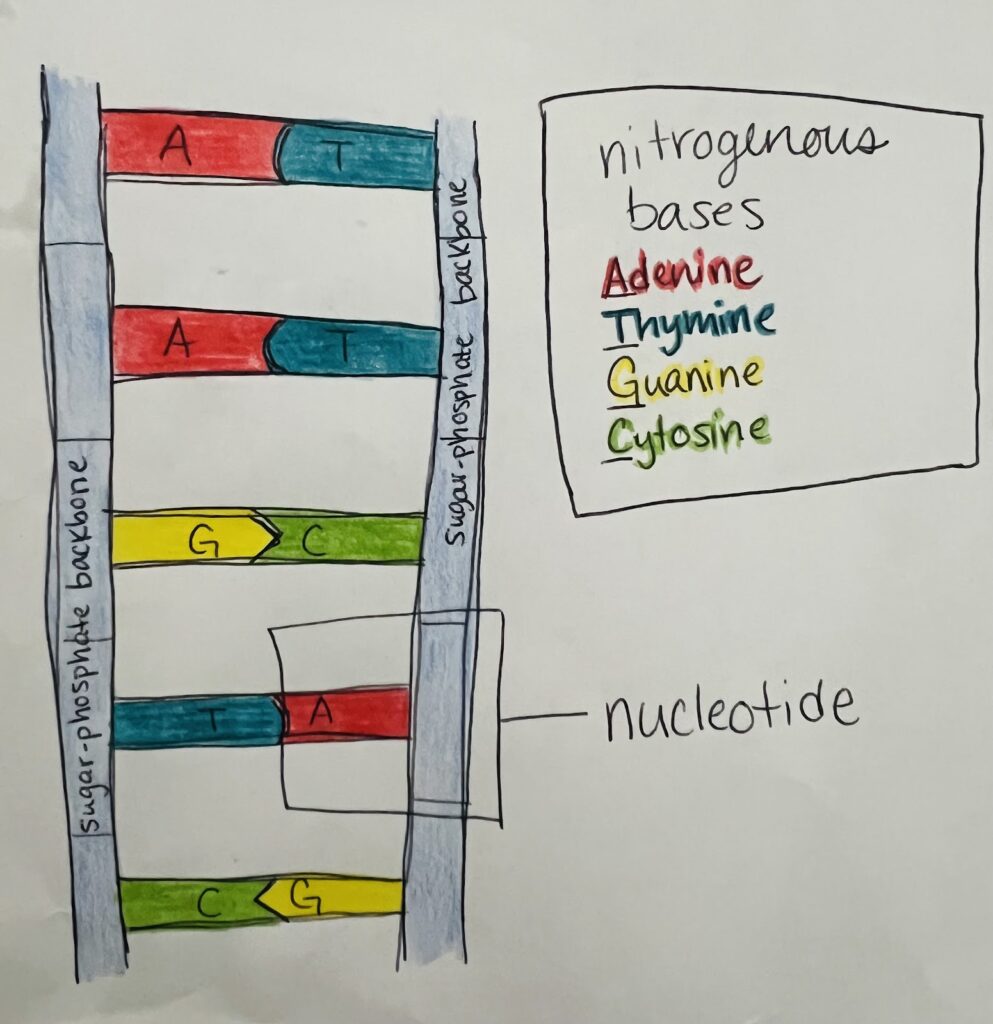 A T
sugar-phosphate backbone
A T
G C
sugar-phosphate backbone
T A
C G
nitrogenous
bases
Adenine
Thymine
Guanine
Cytosine
nucleotide